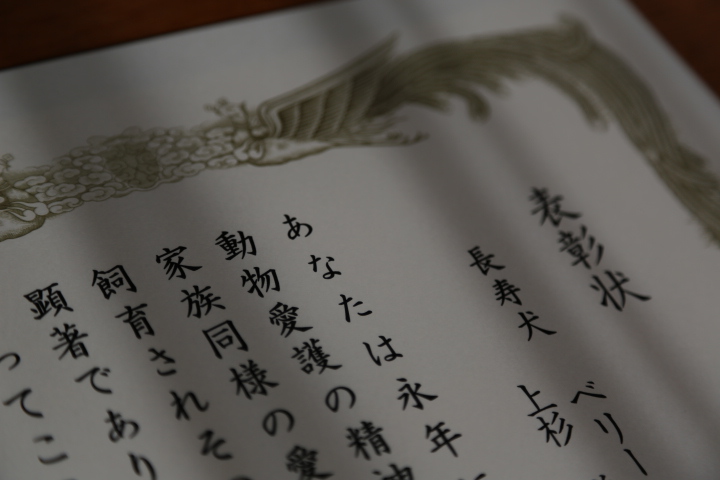 表彰状
長寿犬
ベリー
上杉
あなたは永年
動物愛護の精神
家族同様の愛
飼育されそ
顕著であり
ってこ